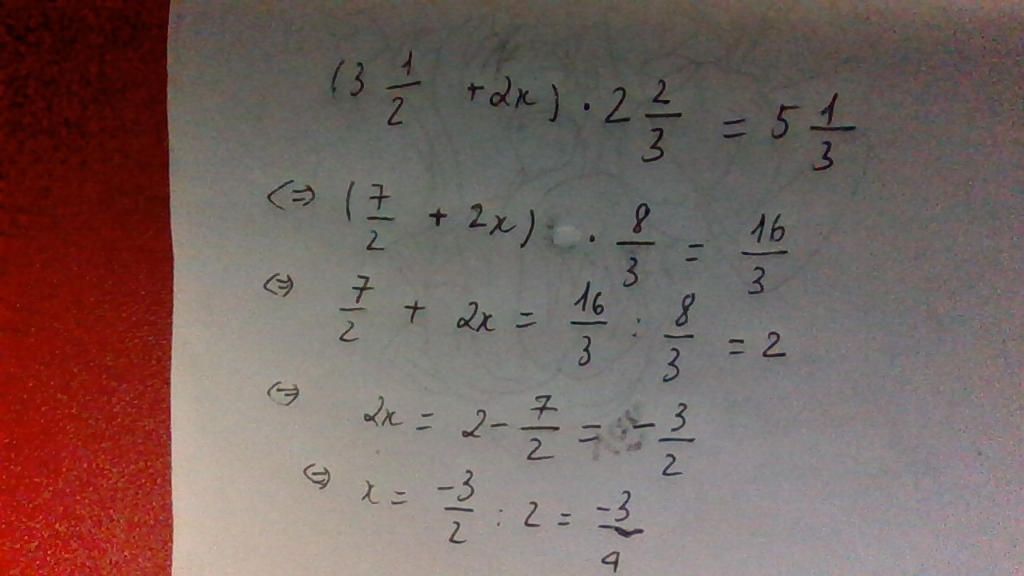 (3 1/2 + 2x) · 2 2/3 = 5 1/3
<=> (7/2 + 2x) · 8/3 = 16/3
<=> 7/2 + 2x = 16/3 : 8/3 = 2
<=> 2x = 2 - 7/2 = -3/2
<=> x = -3/2 : 2 = -3/4